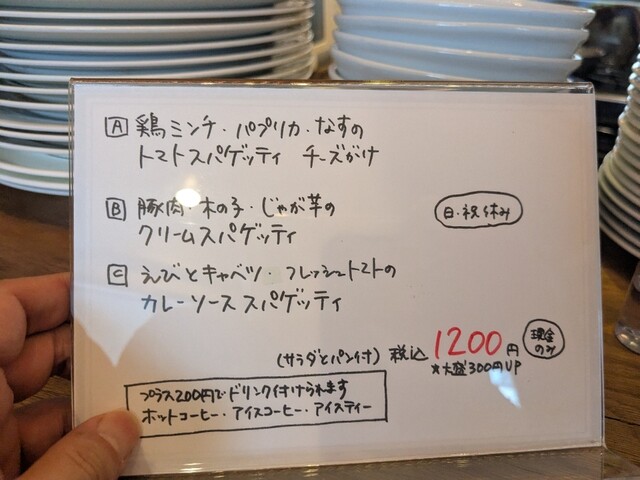 A 鶏ミンチ・パプリカ・なすの
トマトスパゲッティ チーズがけ
B 豚肉・木の子・じゃが芋の
クリームスパゲッティ
日・祝休み
C えびとキャベツ・フレッシュトマトの
カレーソーススパゲッティ
(サラダとパン付) 税込 1200円 現金のみ
★大盛300円UP
プラス200円でドリンク付けられます
ホットコーヒー・アイスコーヒー・アイスティー